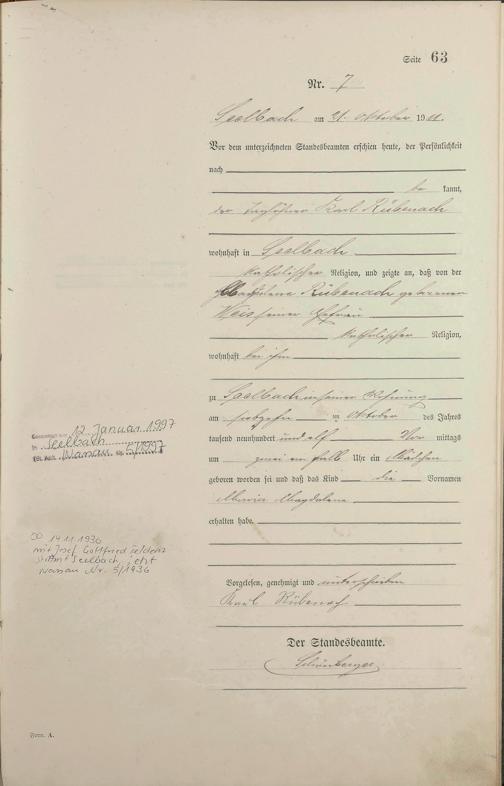 Seite 63
Nr. 7
Seelbach am 21. Oktober 1911.
Vor dem unterzeichneten Standesbeamten erschien heute, der Persönlichkeit
nach
be kannt,
der Taglöhner Karl Rübenach
wohnhaft in Seelbach
katholischer Religion, und zeigte an, daß von der
Rübenach geborenen
Weis seiner Ehefrau
katholischer Religion,
wohnhaft bei ihm
zu Seelbach in seiner Wohnung
am siebzehn ten Oktober des Jahres
tausend neunhundert und elf Vor mittags
um zwei ein halb Uhr ein Mädchen
geboren worden sei und daß das Kind die Vornamen
Maria Magdalena
erhalten habe.
Vorgelesen, genehmigt und unterschrieben
Karl Rübenach
Der Standesbeamte.
12. Januar 1997
in Seelbach
Nr. 5/1997
∞ 14.11.1936
mit Josef Gottfried
Seelbach, jetzt
Nr. 5/1936
Form. A.